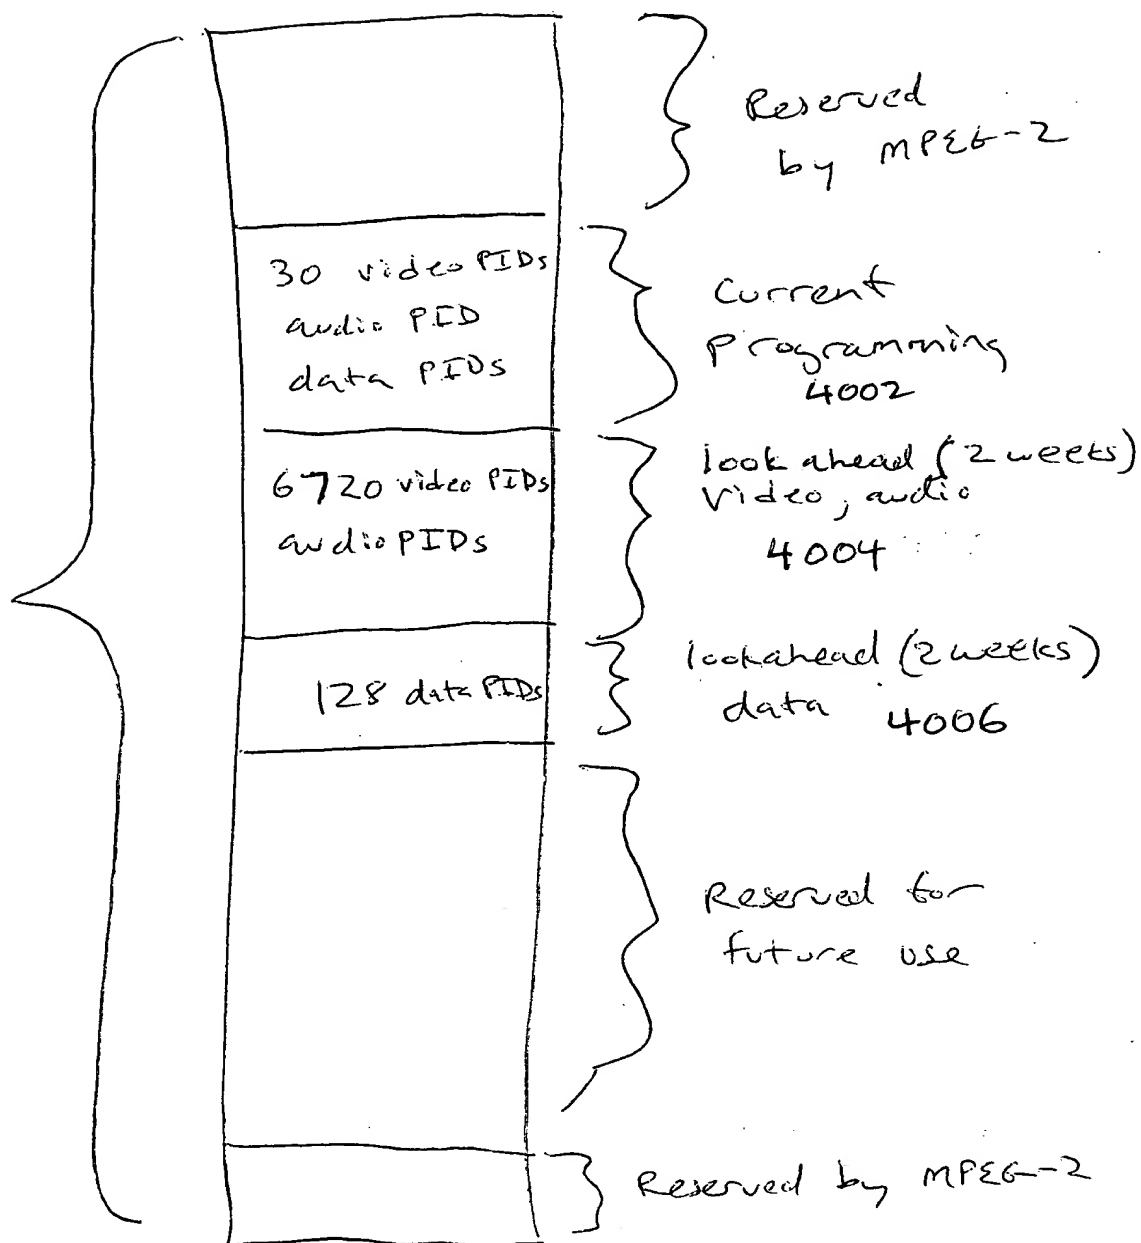 Reserved
by MPEG-2
30 video PIDs
audio PID
data PIDs
Current
Programming
4002
6720 video PIDs
audio PIDs
look ahead (2 weeks)
Video, audio
4004
128 data PIDs
lookahead (2 weeks)
data 4006
Reserved for
future use
Reserved by MPEG-2